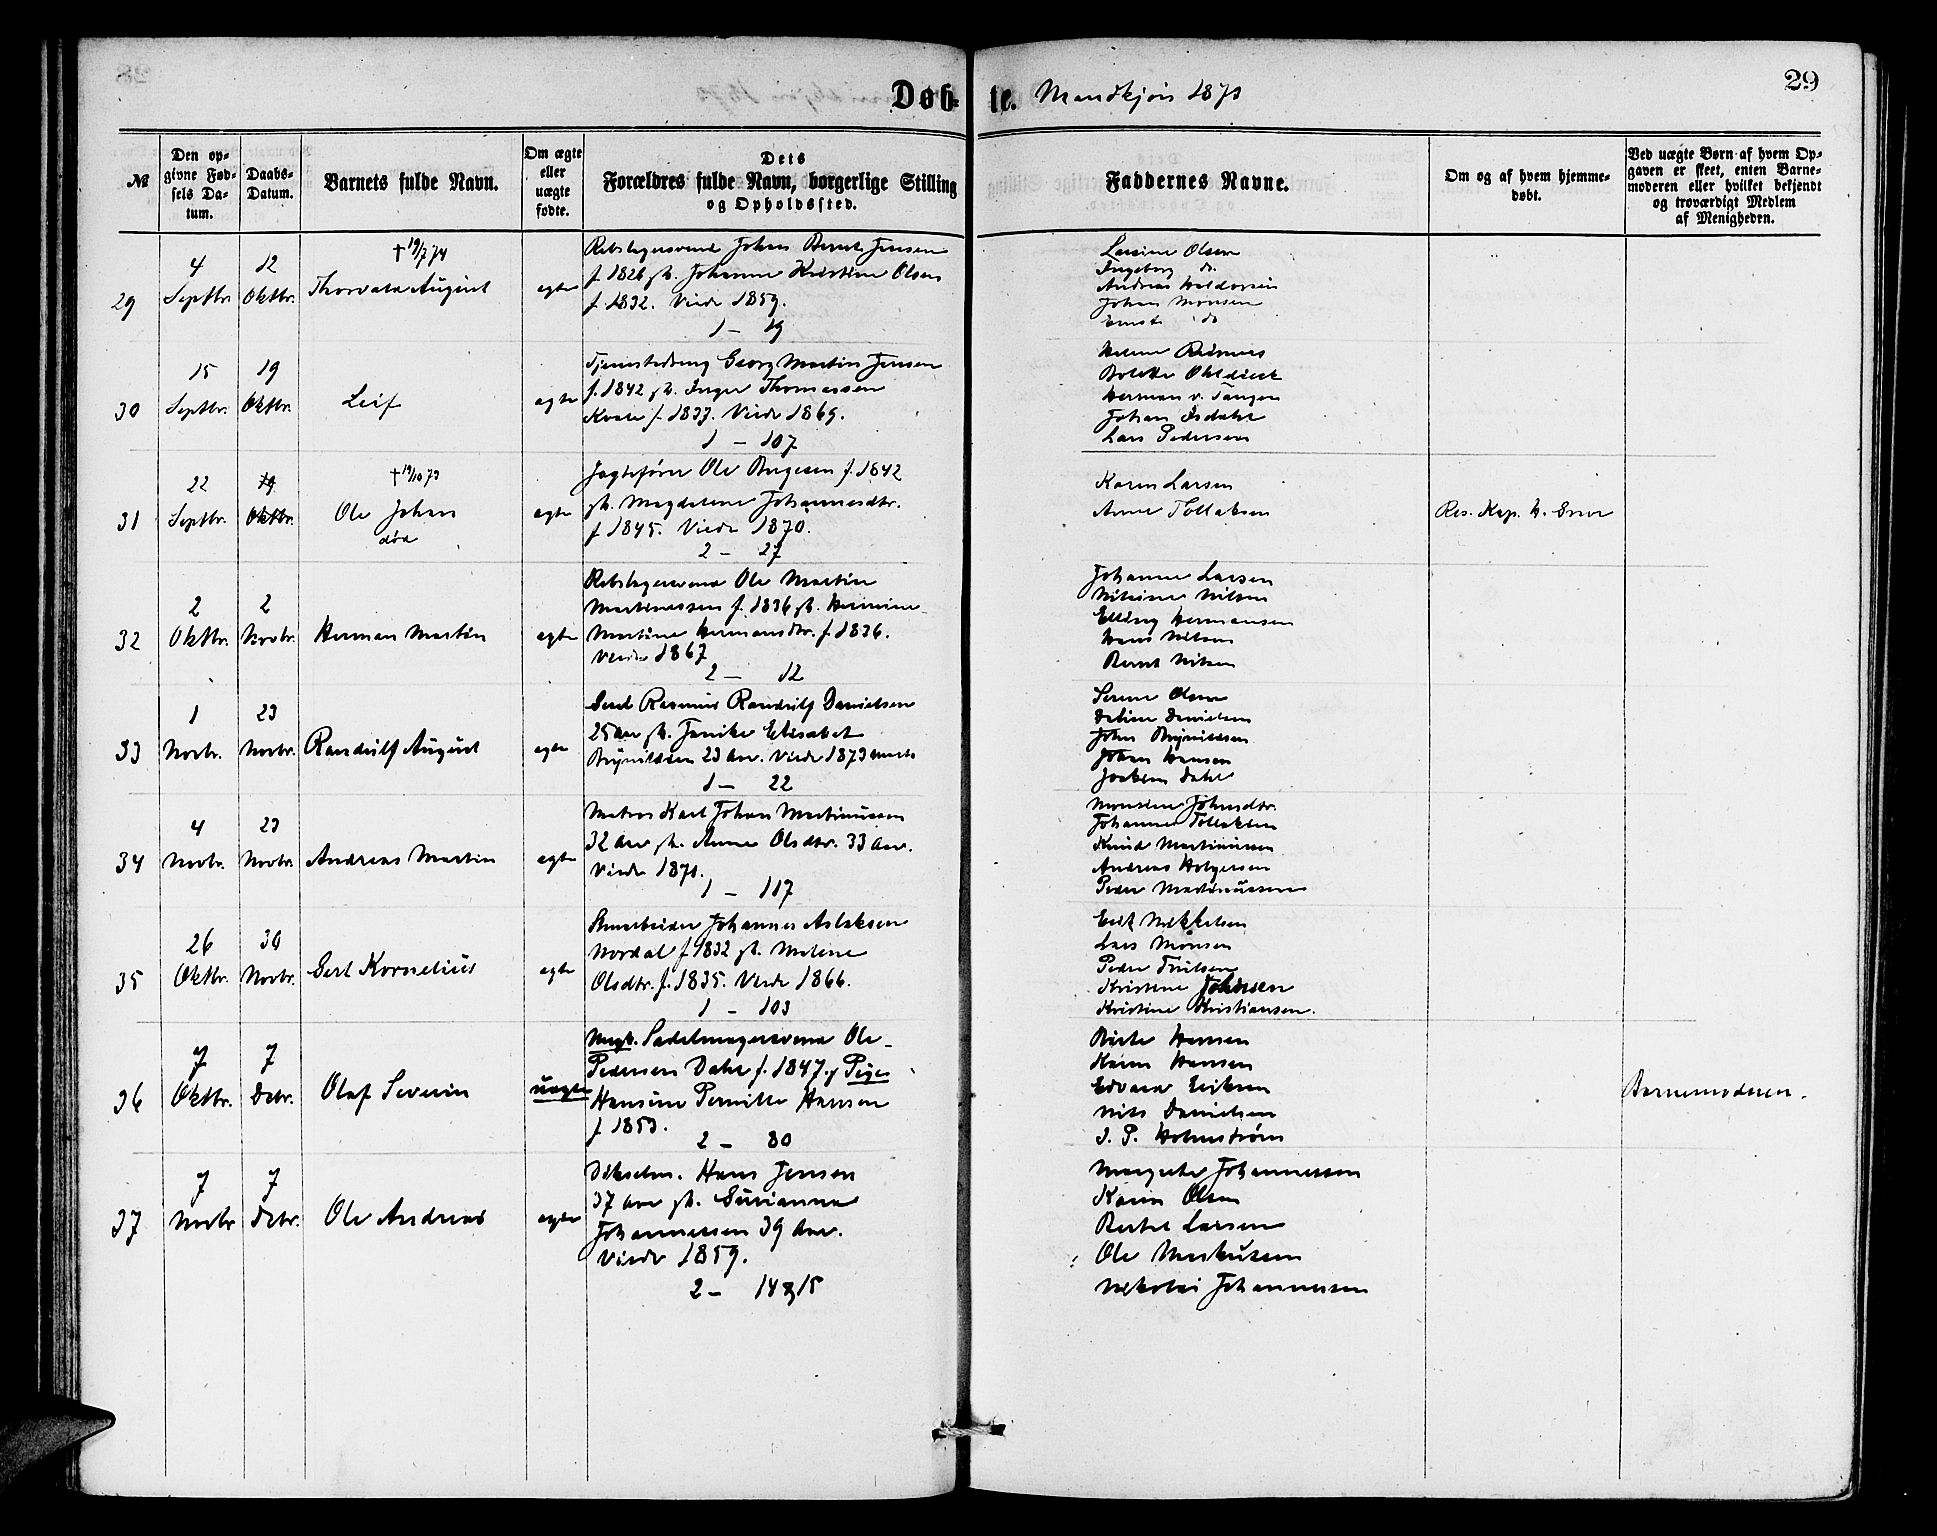 29
Døb- te. Mandkjøn 1873
№
Den op-
givne Fød-
sels Da-
tum.
Daabs-
Datum.
Barnets fulde Navn.
Om ægte
eller
uægte
fødte.
Dets
Forældres fulde Navn, borgerlige Stilling
og Opholdssted.
Faddernes Navne.
Om og af hvem hjemme-
døbt.
Ved uægte Børn af hvem Op-
gaven er skeet, enten Barne-
moderen eller hvilket bekjendt
og troværdigt Medlem
af Menigheden.
29
4
Septbr.
12
Oktbr.
† 19/7 74
Thorvald August
ægte
Rebslagersvend Johan Bernt Jensen
f. 1826 gh. Johanne Kristine Olsen
f. 1832. Viede 1859.
1 - 19
Larsine Olsen
Ingeborg do.
Andreas Haldorsen
Johan Monsen
Ernst do
30
15
Septbr.
19
Oktbr.
Leif
ægte
Tjenestedreng Georg Martin Jensen
f. 1842 gh. Inger Thomassen
f. 1837. Viede 1869.
1 - 107
Herman v. Tangen
Johan Isdahl
Lars Pedersen
31
22
Septbr.
19
Oktbr.
† 19/10 73
Ole Johan
død
ægte
Jagtefører Ole Birgesen f. 1842
gh. Magdalene Johannesdtr.
f. 1845. Viede 1870.
2 - 27
Karen Larsen
Anne Tollaksen
Res. Kap. H.
32
2
Oktbr.
2
Novbr.
Herman Martin
ægte
Rebslagersvend Ole Martin
Martinussen f. 1836 gh. Hermine
Martine Hermansdtr. f. 1836.
Viede 1867
2 - 12
Johanne Larsen
Nilsine Nilsen
Elling Hermansen
Hans Nilsen
Bernt Nilsen
33
1
Novbr.
23
Novbr.
Randulf August
ægte
Rasmus Randulf Danielsen
25 Aar gh. Janike Elisabet
Brynildsen 23 Aar. Viede 1873
1 - 22
Serine Olsen
Danielsen
John Brynildsen
Johan Hansen
Joakim Dahl
34
4
Novbr.
23
Novbr.
Andreas Martin
ægte
Matros Karl Johan Martinussen
32 Aar gh. Anne Olsdtr. 33 Aar.
Viede 1871.
1 - 117
Johnsdtr.
Johanne Tollaksen
Knud Martinussen
Andreas Holgersen
Peder Martinussen
35
26
Oktbr.
30
Novbr.
Gert Kornelius
ægte
Johannes Aslaksen
Nordal f. 1832 gh. Malene
Olsdtr. f. 1835. Viede 1866.
1 - 103
Mikkelsen
Lars Monsen
Peder Truelsen
Kristine Johnsen
Kristine Kristiansen.
36
7
Oktbr.
7
Debr.
Olaf Severin
uægte
Ungk. Sadelmagersvend Ole
Pedersen Dahl f. 1847. & Pige
Hansine Pernille Hansen
f. 1853.
2 - 80
Birte Hansen
Karen Hansen
Edvard Eriksen
Nils Danielsen
J. P. Holmstrøm
Barnemoderen.
37
7
Novbr
7
Debr.
Ole Andreas
ægte
Hans Jensen
37 Aar gh. Gurianna
Johannessen 39 Aar.
Viede 1859.
2 - 14 & 15
Margrete Johannessen
Karen Olsen
Bertel Larsen
Ole Markussen
Nikolai Johannessen